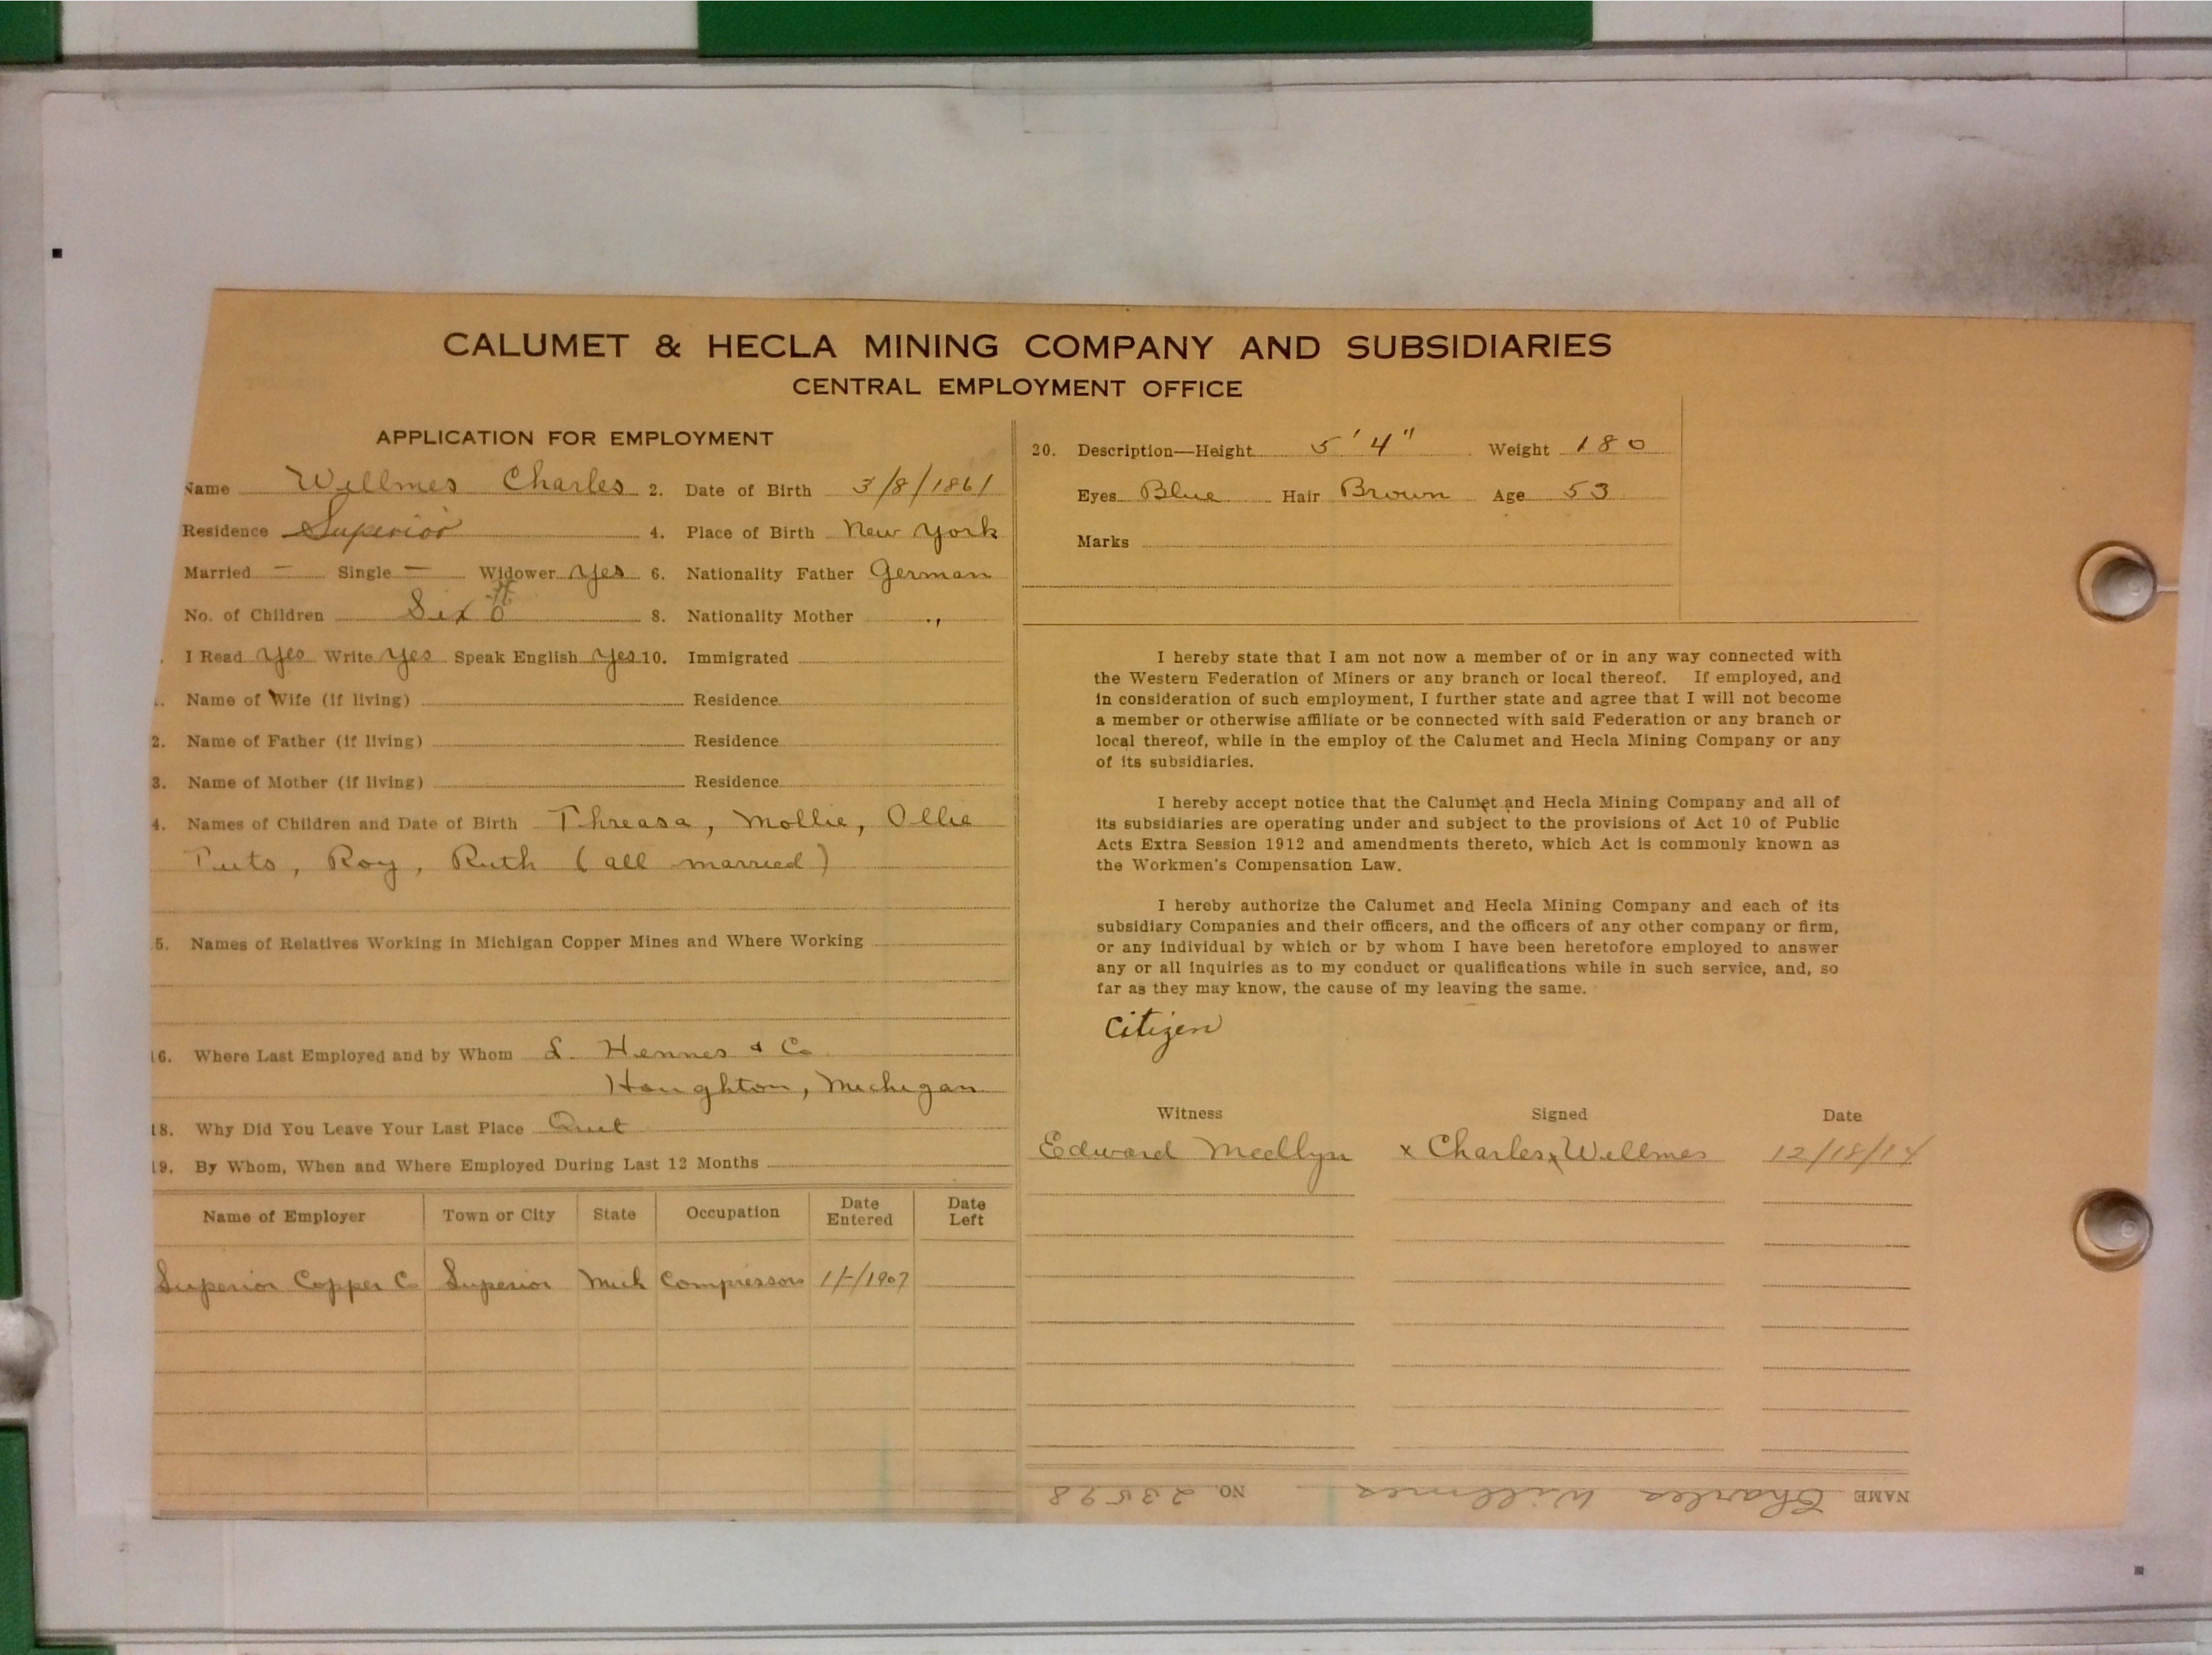 CALUMET & HECLA MINING COMPANY AND SUBSIDIARIES
CENTRAL EMPLOYMENT OFFICE
APPLICATION FOR EMPLOYMENT
Name Willmes Charles 2. Date of Birth 3/8/1861
Residence Superior 4. Place of Birth New York
Married - Single - Widower yes 6. Nationality Father German
No. of Children Six 8. Nationality Mother "
I Read yes Write yes Speak English yes 10. Immigrated
Name of Wife (if living) Residence
2. Name of Father (if living) Residence
3. Name of Mother (if living) Residence
4. Names of Children and Date of Birth Threasa, Mollie, Ollie
Tuts, Roy, Ruth (all married)
5. Names of Relatives Working in Michigan Copper Mines and Where Working
16. Where Last Employed and by Whom L. Hennes & Co
Houghton, Michigan
18. Why Did You Leave Your Last Place Quit
19. By Whom, When and Where Employed During Last 12 Months
Name of Employer Town or City State Occupation Date Entered Date Left
Superior Copper Co Superior Mich Compressors 1/-/1907
20. Description—Height 5' 4" Weight 180
Eyes Blue Hair Brown Age 53
Marks
I hereby state that I am not now a member of or in any way connected with
the Western Federation of Miners or any branch or local thereof. If employed, and
in consideration of such employment, I further state and agree that I will not become
a member or otherwise affiliate or be connected with said Federation or any branch or
local thereof, while in the employ of the Calumet and Hecla Mining Company or any
of its subsidiaries.
I hereby accept notice that the Calumet and Hecla Mining Company and all of
its subsidiaries are operating under and subject to the provisions of Act 10 of Public
Acts Extra Session 1912 and amendments thereto, which Act is commonly known as
the Workmen's Compensation Law.
I hereby authorize the Calumet and Hecla Mining Company and each of its
subsidiary Companies and their officers, and the officers of any other company or firm,
or any individual by which or by whom I have been heretofore employed to answer
any or all inquiries as to my conduct or qualifications while in such service, and, so
far as they may know, the cause of my leaving the same.
Citizen
Witness Signed Date
Edward Medlyn x Charles x Willmes 12/18/14
NAME Charles Willmes NO. 23598